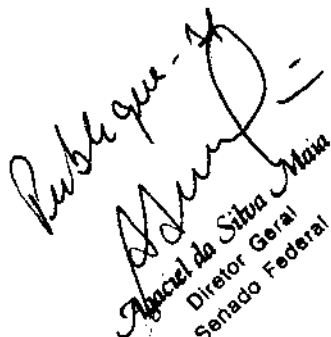 Publique-se
Agaciel da Silva Maia
Diretor Geral
Senado Federal